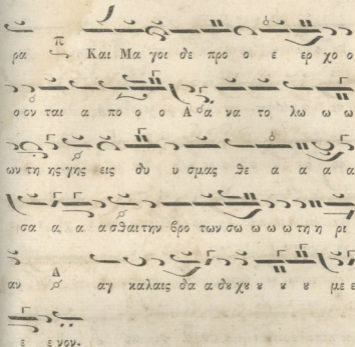 ρα π Και Μα γοι δε προ ο ε ερ χο ο
ο ον ται α πο ο ο Α α να το λω ω ω
ων τη ης γης εις δυ υ σμας θε α α α α
σα α α α σθαι την βρο των σω ω ω ω τη η ρι
αν Δ αγ καλαις δα α δυ χου ου ου ου με ε
ε ε νον.